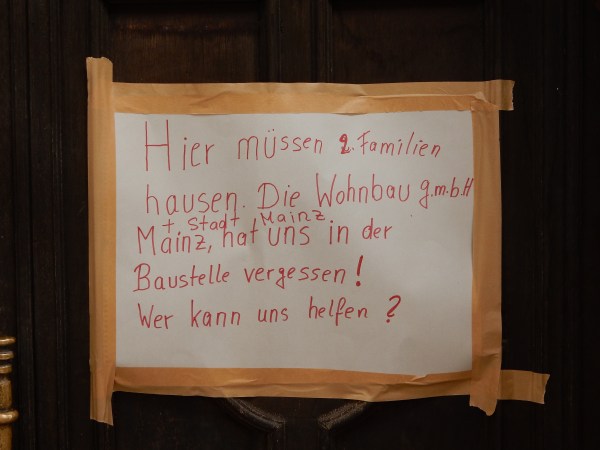 Hier müssen 2. Familien
hausen. Die Wohnbau g.m.b.H
+ Stadt Mainz
Mainz, hat uns in der
Baustelle vergessen!
Wer kann uns helfen?